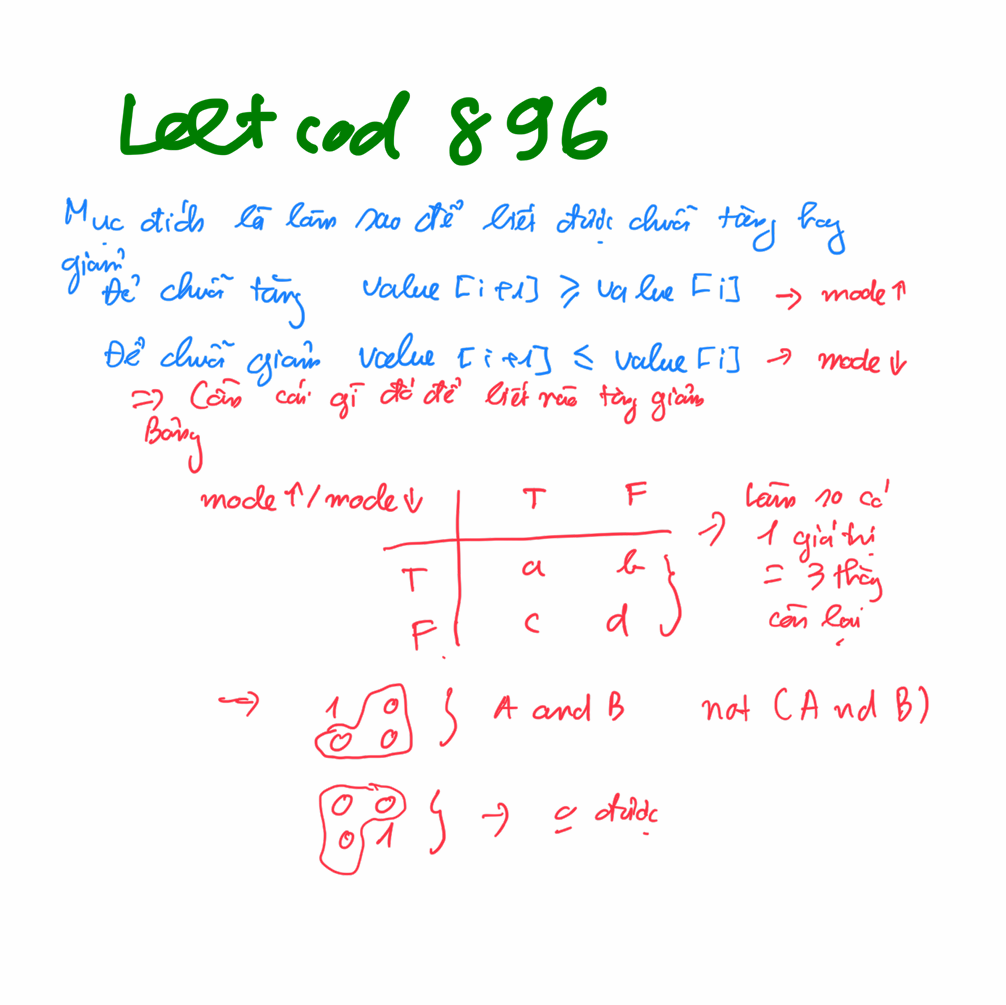 Leet cod 896
Mục đích là làm sao để biết được chuỗi tăng hay
giảm
Để chuỗi tăng value [i+1] ≥ value [i] → mode ↑
Để chuỗi giảm value [i+1] ≤ value [i] → mode ↓
=> Cần cái gì đó để biết nào tăng giảm
Bảng
mode ↑ / mode ↓ T F → làm so có
1 giá trị
T a b = 3 thằng
F c d còn lại
→ 1 0 } A and B not (A nd B)
0 0
0 0 } → được
0 1